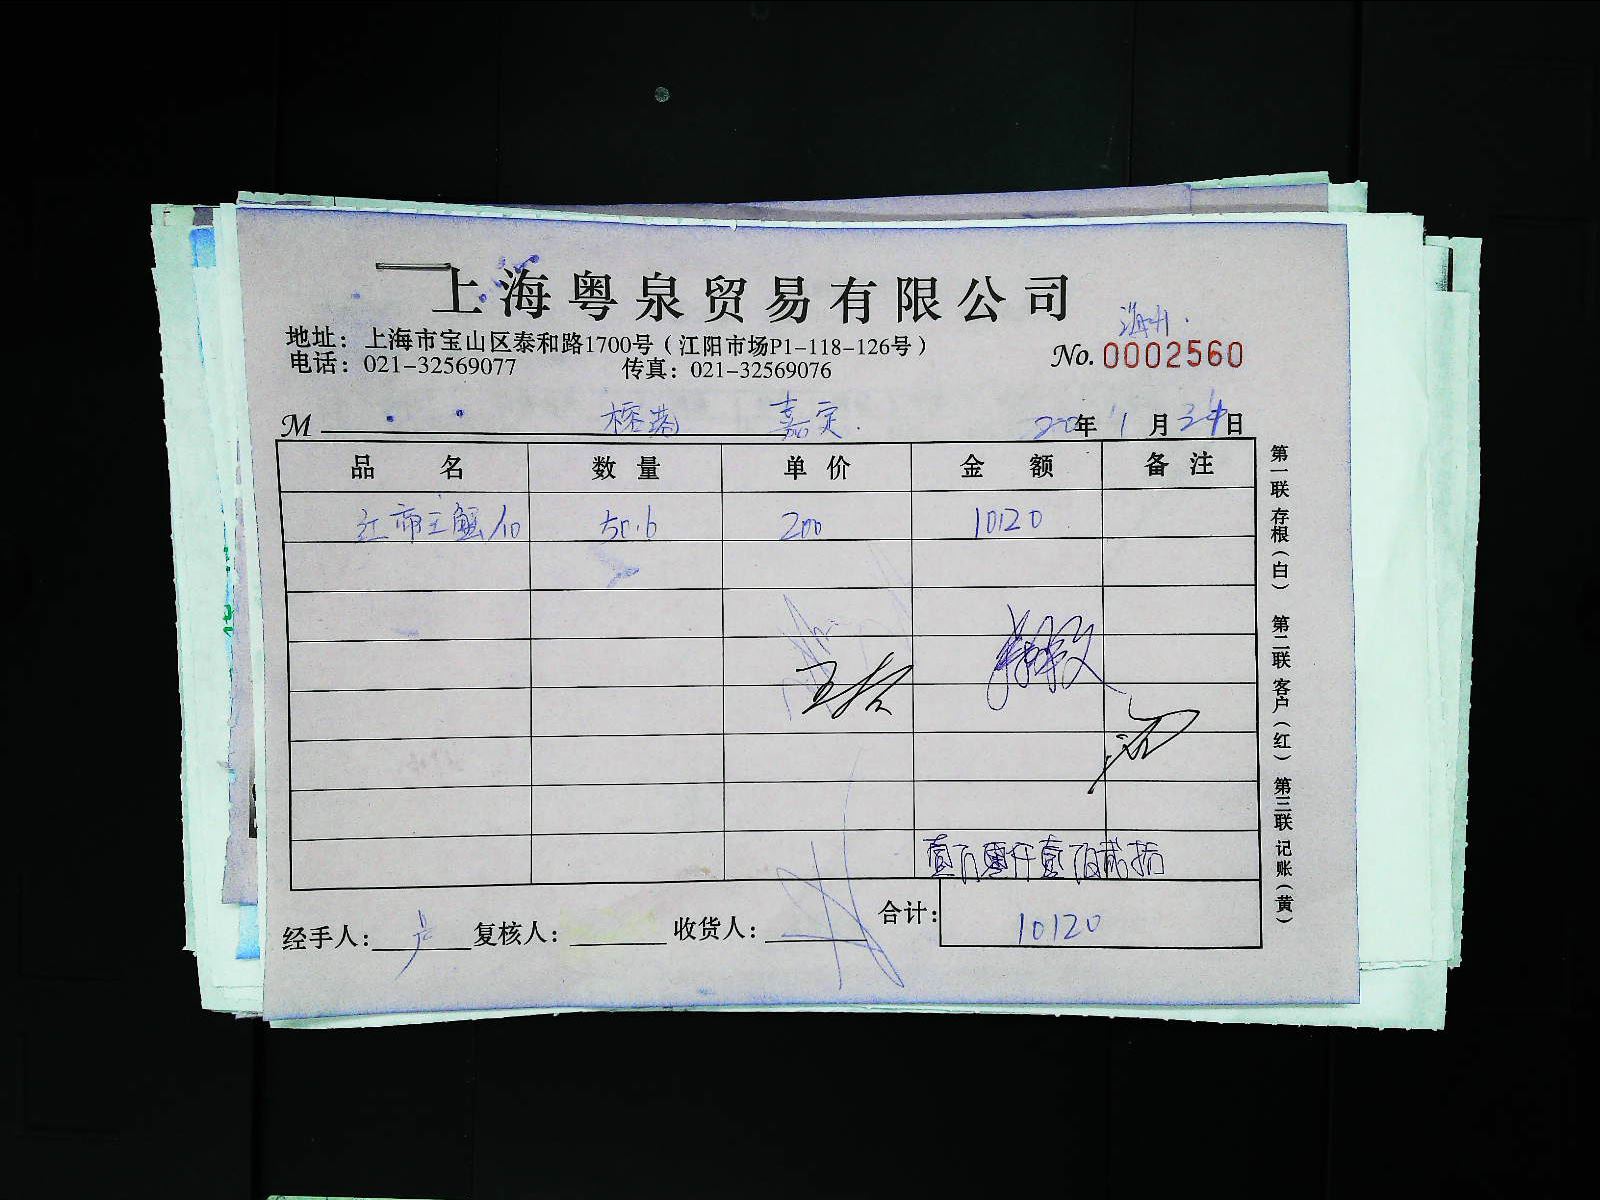 上海粤泉贸易有限公司
地址：上海市宝山区泰和路1700号（江阳市场P1-118-126号）
海州.
电话：021-32569077 传真：021-32569076
No. 0002560
M 榕港 嘉定. 年 1 月 日
品名 数量 单价 金额 备注
江帝王蟹 10 50.6 200 10120
壹万零仟壹佰贰拾
合计： 10120
经手人： 复核人： 收货人：
第一联 存根（白） 第二联 客户（红） 第三联 记账（黄）